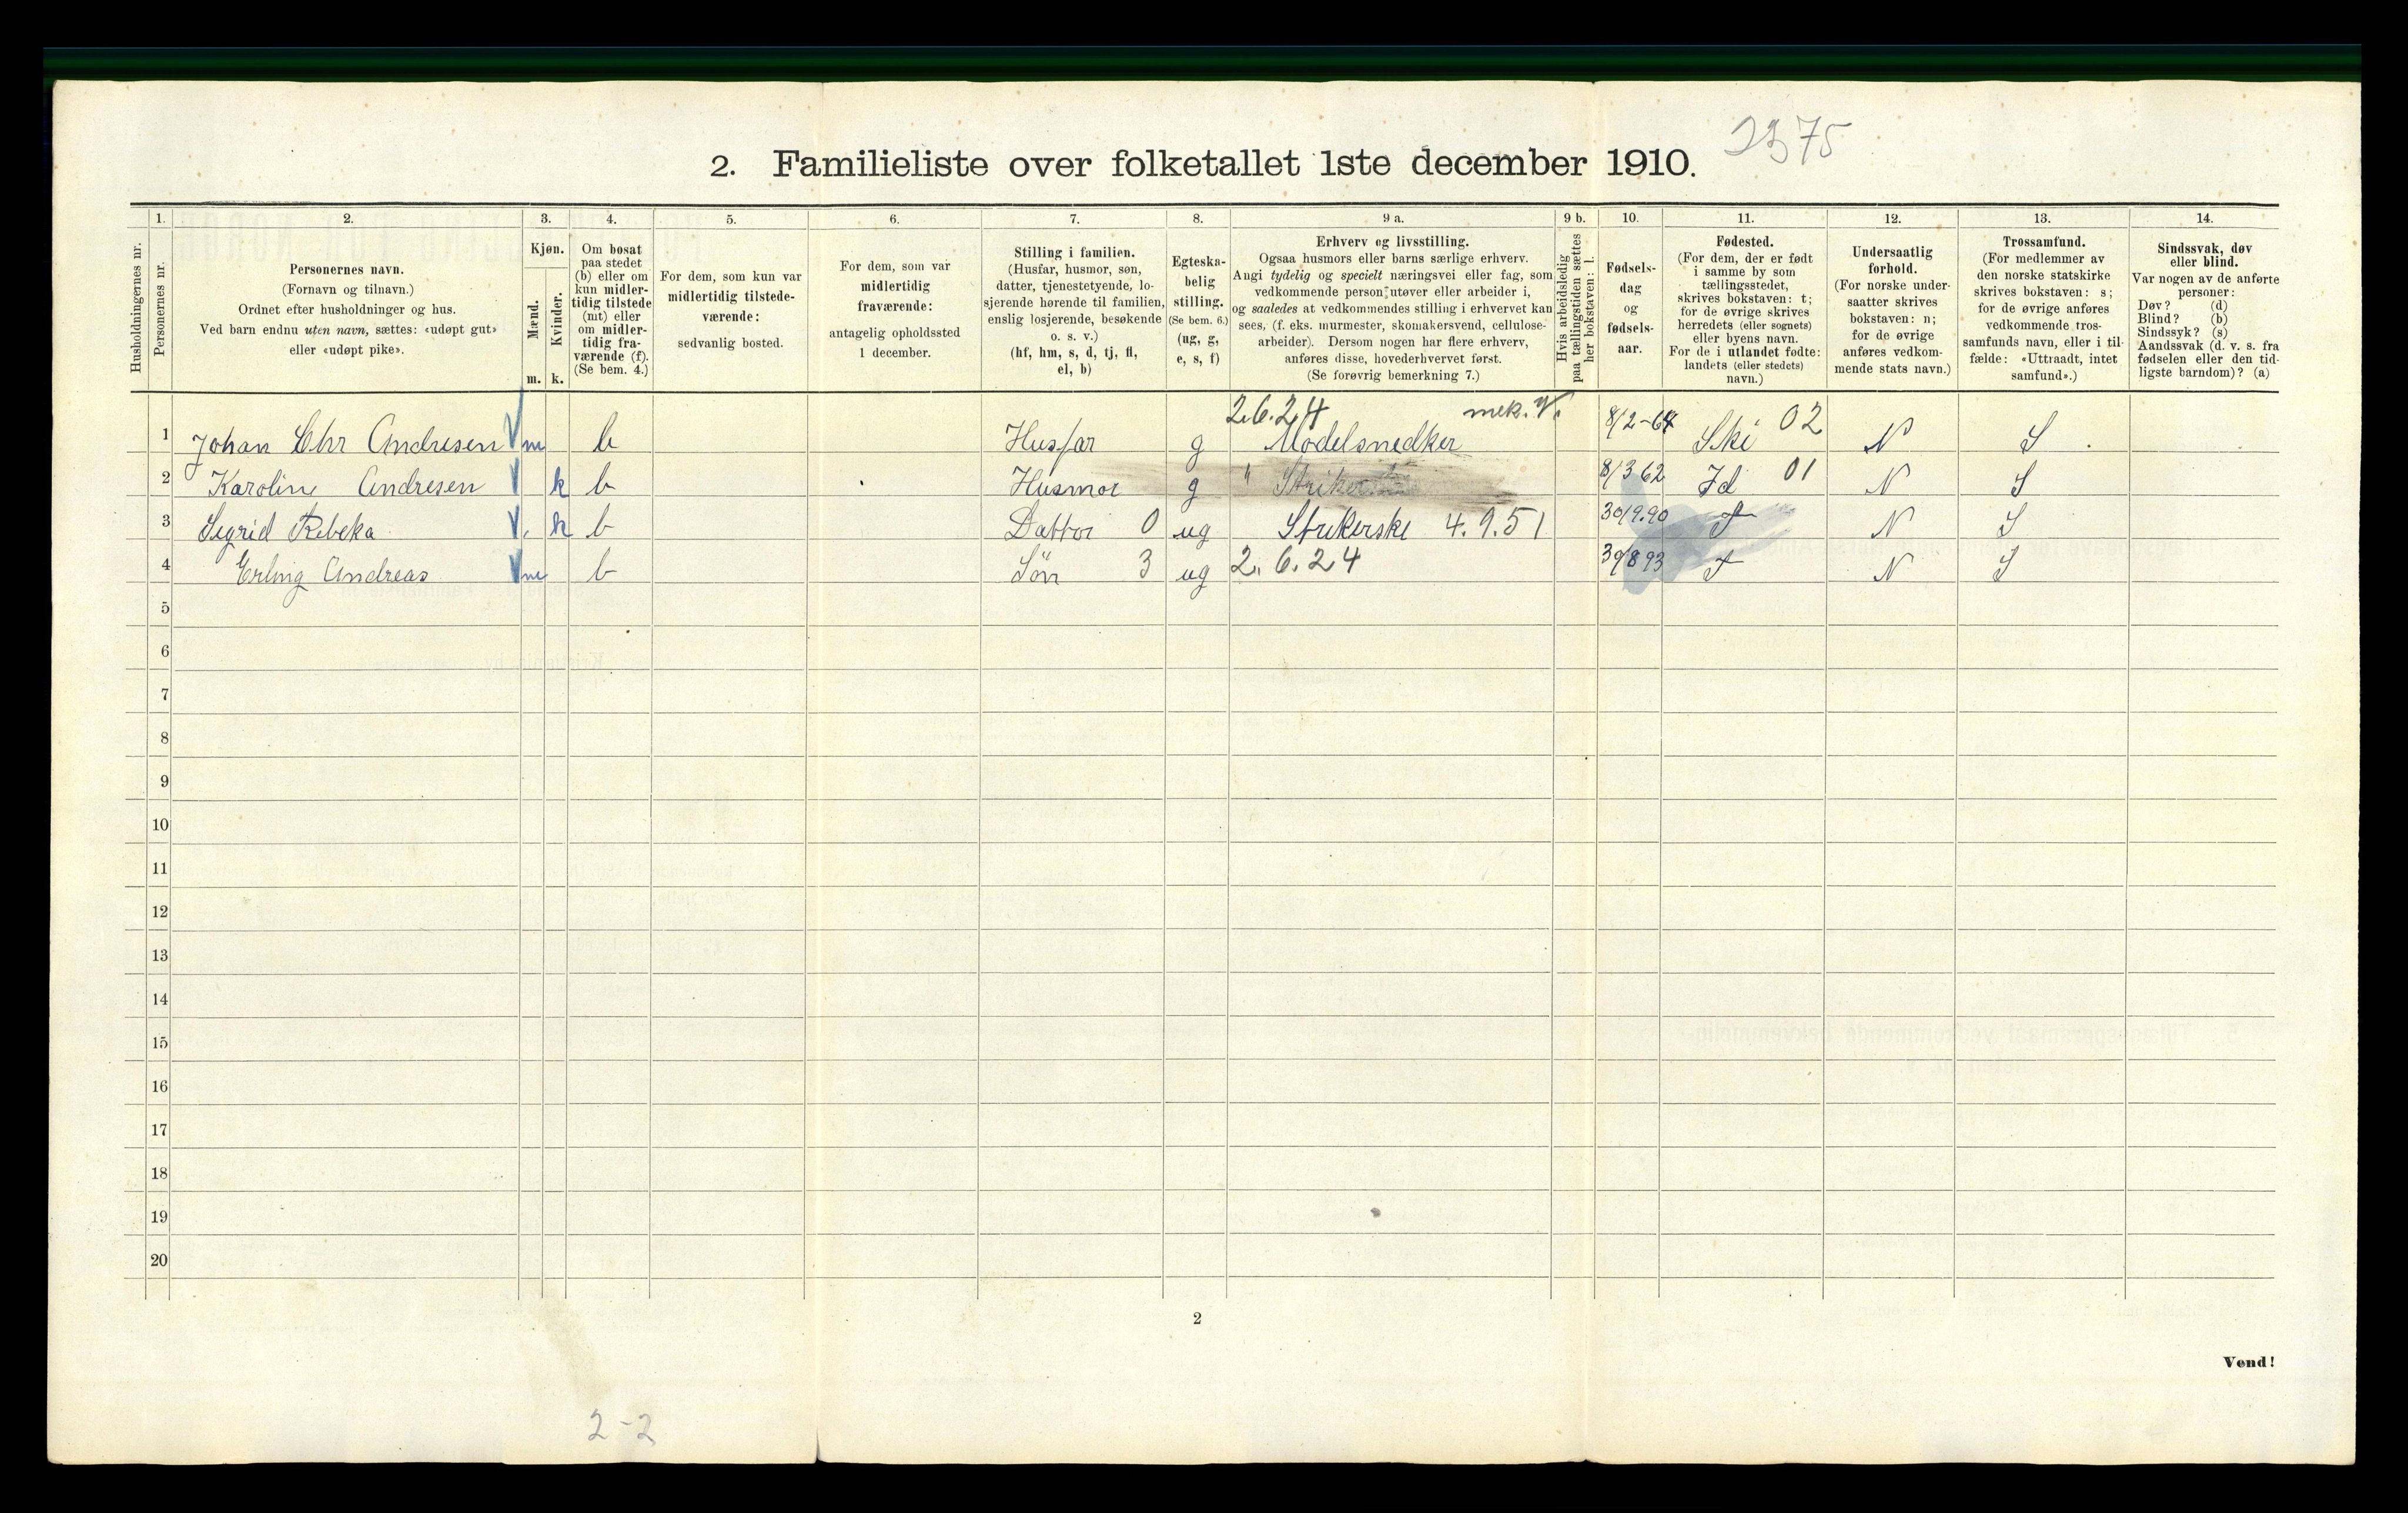 2375
2. Familieliste over folketallet 1ste december 1910.
Husholdningernes nr.
1.
Personernes nr.
2.
Personernes navn.
(Fornavn og tilnavn.)
Ordnet efter husholdninger og hus.
Ved barn endnu uten navn, sættes: «udøpt gut»
eller «udøpt pike».
3.
Kjøn.
Mænd.
Kvinder.
m. k.
4.
Om bosat
paa stedet
(b) eller om
kun midler-
tidig tilstede
(mt) eller
om midler-
tidig fra-
værende (f).
(Se bem. 4.)
5.
For dem, som kun var
midlertidig tilstede-
værende:
sedvanlig bosted.
6.
For dem, som var
midlertidig
fraværende:
antagelig opholdssted
1 december.
7.
Stilling i familien.
(Husfar, husmor, søn,
datter, tjenestetyende, lo-
sjerende hørende til familien,
enslig losjerende, besøkende
o. s. v.)
(hf, hm, s, d, tj, fl,
el, b)
8.
Egteska-
belig
stilling.
(Se bem. 6.)
(ug, g,
e, s, f)
9 a.
Erhverv og livsstilling.
Ogsaa husmors eller barns særlige erhverv.
Angi tydelig og specielt næringsvei eller fag, som
vedkommende person utøver eller arbeider i,
og saaledes at vedkommendes stilling i erhvervet kan
sees, (f. eks. murmester, skomakersvend, cellulose-
arbeider). Dersom nogen har flere erhverv,
anføres disse, hovederhvervet først.
(Se forøvrig bemerkning 7.)
9 b.
Hvis arbeidsledig
paa tællingstiden sættes
her bokstaven: l.
10.
Fødsels-
dag
og
fødsels-
aar.
11.
Fødested.
(For dem, der er født
i samme by som
tællingsstedet,
skrives bokstaven: t;
for de øvrige skrives
herredets (eller sognets)
eller byens navn.
For de i utlandet fødte:
landets (eller stedets)
navn.)
12.
Undersaatlig
forhold.
(For norske under-
saatter skrives
bokstaven: n;
for de øvrige
anføres vedkom-
mende stats navn.)
13.
Trossamfund.
(For medlemmer av
den norske statskirke
skrives bokstaven: s;
for de øvrige anføres
vedkommende tros-
samfunds navn, eller i til-
fælde: «Uttraadt, intet
samfund».)
14.
Sindssvak, døv
eller blind.
Var nogen av de anførte
personer:
Døv? (d)
Blind? (b)
Sindssyk? (s)
Aandssvak (d. v. s. fra
fødselen eller den tid-
ligste barndom)? (a)
2.6.24 mek. V.
1 Johan Chr Andresen V m b Husfar g Modelsnedker 8/2-64 Ski 02 N S
2 Karoline Andresen V k b Husmor g " 8/3 62 Id 01 N S
3 Sigrid Rebeka V. k b Datter 0 ug Strikerske 4.9.51 30/9.90 t N S
4 Erling Andreas V m b Søn 3 ug 2.6.24 30/8 93 t N S
5
6
7
8
9
10
11
12
13
14
15
16
17
18
19
20
2
Vend!
2-2